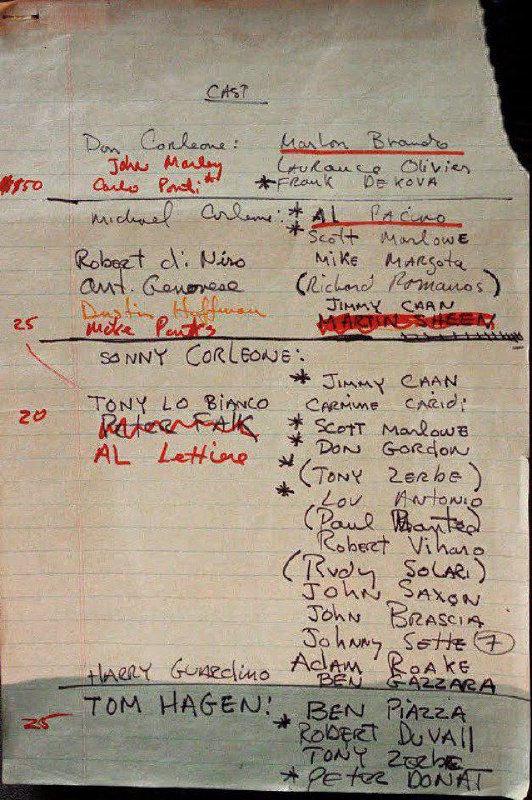 CAST
Don Corleone: Marlon Brando
John Marley Laurance Olivier
$150 Carlo Ponti* *FRANK DEKOVA
Michael Corleone: * AL PACINO
* Scott Marlowe
Robert di Niro MIKE MARGOTA
Ant. Genovese (Richard Romanos)
Dustin Hoffman JIMMY CAAN
25 Mike Parks MARTIN SHEEN
SONNY CORLEONE:
* JIMMY CAAN
TONY LO BIANCO CARMINE CARIDI
20 Peter FALK * SCOTT MARLOWE
AL Lettiere * DON GORDON
* (TONY ZERBE)
* LOU ANTONIO
(Paul)
Robert Viharo
(Rudy SOLARI)
JOHN SAXON
JOHN BRASCIA
Johnny SETTE (7)
Adam ROAKE
HARRY GUARDINO BEN GAZZARA
25 TOM HAGEN: BEN PIAZZA
* ROBERT DUVALL
TONY ZERBE
* PETER DONAT